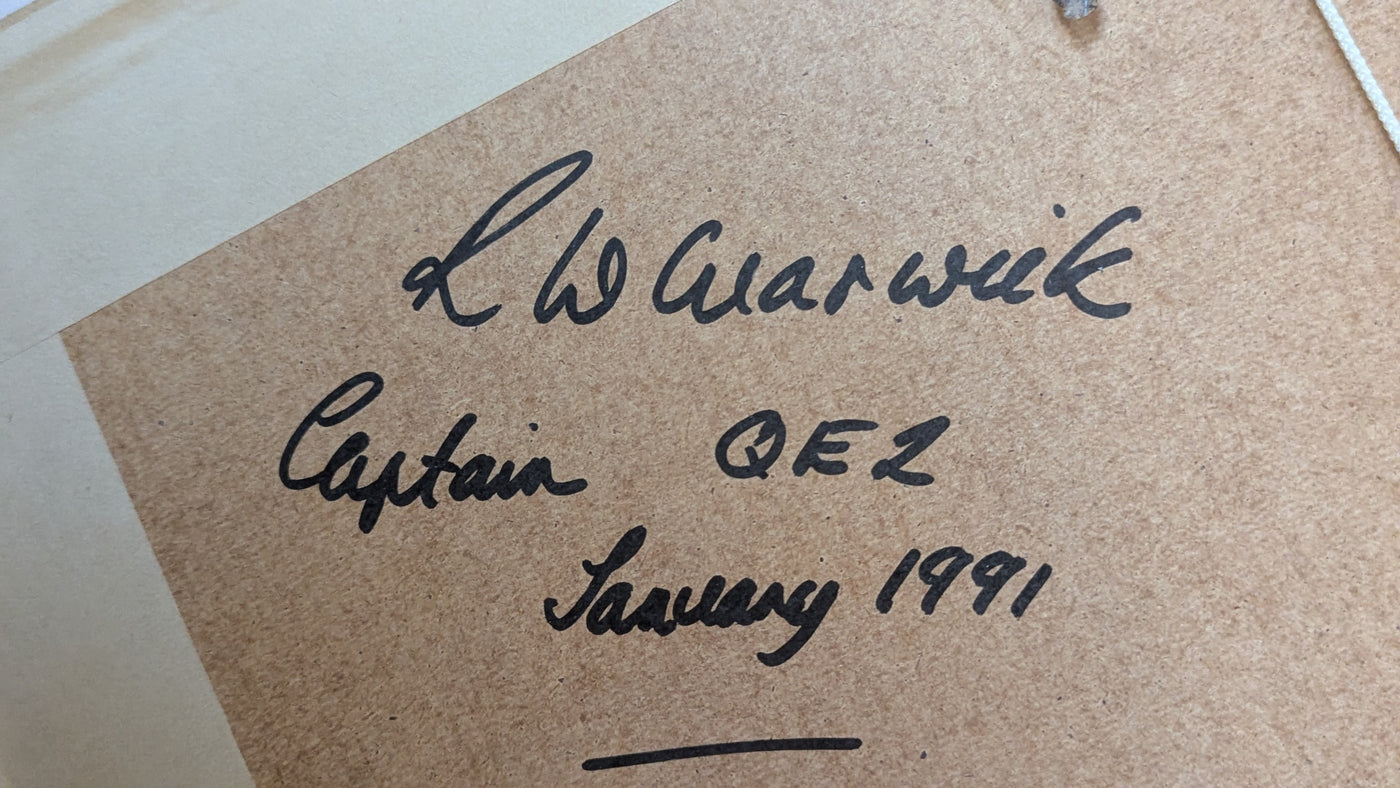 R W Warwick
Captain QE2
January 1991